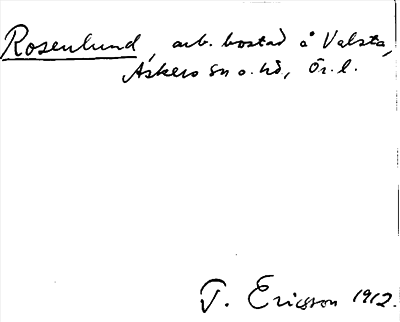 Rosenlund, arb. bostad å Valsta,
Askers sn o. hd, Ör. l.
T. Ericsson 1912.